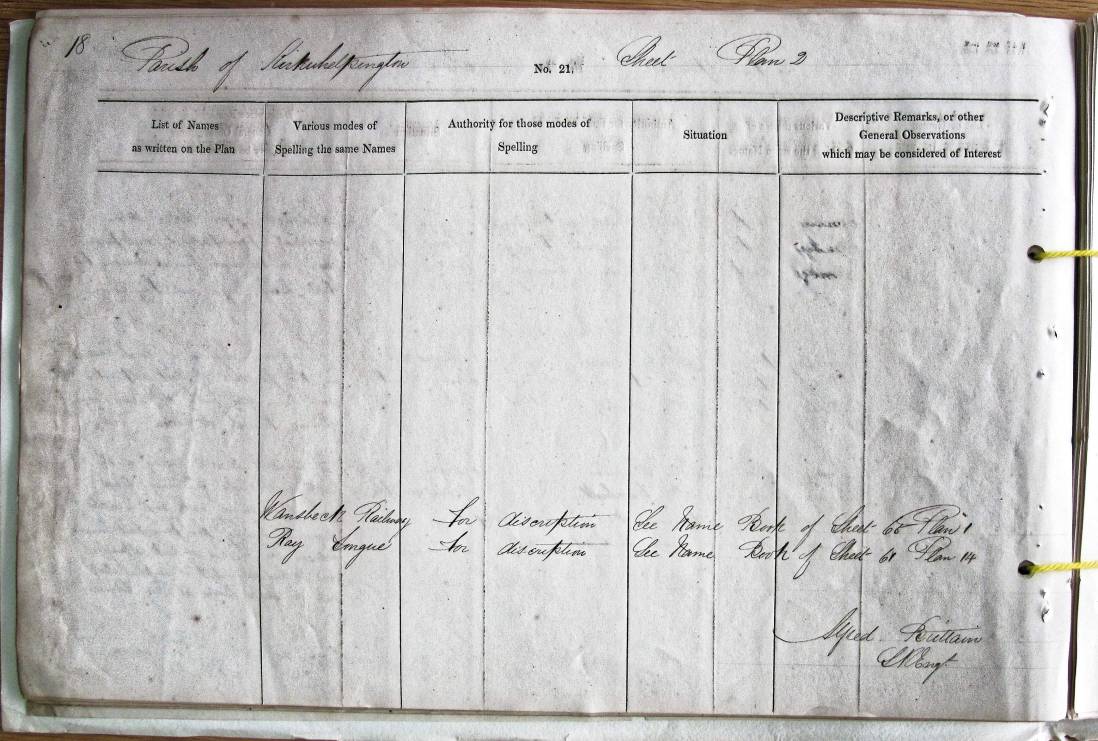 18
Parish of Kirkwhelpington No. 21. Sheet Plan 2
List of Names
as written on the Plan
Various modes of
Spelling the same Names
Authority for those modes of
Spelling
Situation
Descriptive Remarks, or other
General Observations
which may be considered of Interest
Wansbeck Railway for discription See Name Book of Sheet Plan 1
Ray Tongue for discription See Name Book of Sheet 61 Plan 14
Alfred Brittain